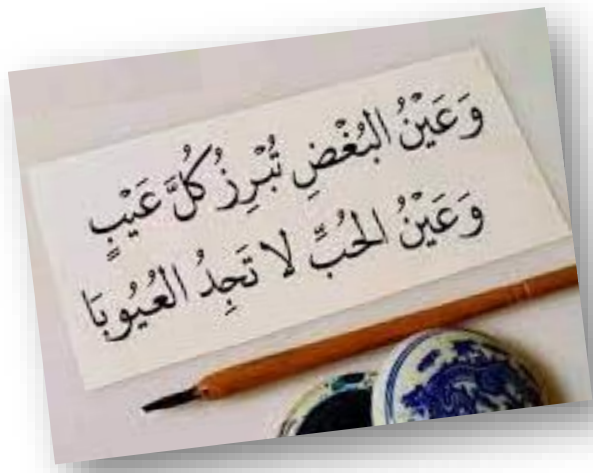 وَعَيْنُ البُغْضِ تُبْرِزُ كُلَّ عَيْبٍ
وَعَيْنُ الحُبِّ لا تَجِدُ العُيُوبَا